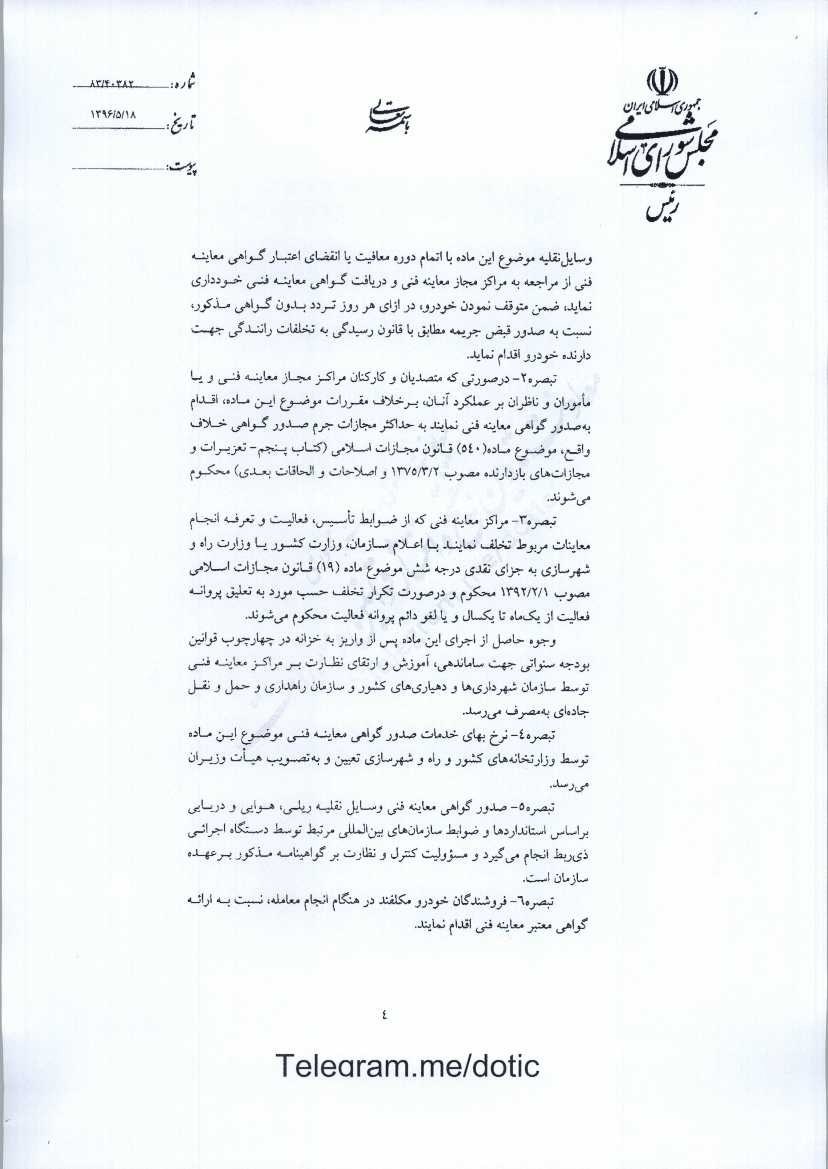 جمهوری اسلامی ایران
مجلس شورای اسلامی
رئیس
باسمه تعالی
شماره: ۸۳/۴۰۳۸۲
تاریخ: ۱۳۹۶/۵/۱۸
پیوست:
وسایل‌نقلیه موضوع این ماده با اتمام دوره معافیت یا انقضای اعتبار گواهی معاینه
فنی از مراجعه به مراکز مجاز معاینه فنی و دریافت گواهی معاینه فنی خودداری
نماید، ضمن متوقف نمودن خودرو، در ازای هر روز تردد بدون گواهی مذکور،
نسبت به صدور قبض جریمه مطابق با قانون رسیدگی به تخلفات رانندگی جهت
دارنده خودرو اقدام نماید.
تبصره۲- درصورتی که متصدیان و کارکنان مراکز مجاز معاینه فنی و یا
مأموران و ناظران بر عملکرد آنان، برخلاف مقررات موضوع این ماده، اقدام
به‌صدور گواهی معاینه فنی نمایند به حداکثر مجازات جرم صدور گواهی خلاف
واقع، موضوع ماده(۵۴۰) قانون مجازات اسلامی (کتاب پنجم- تعزیرات و
مجازات‌های بازدارنده مصوب ۱۳۷۵/۳/۲ و اصلاحات و الحاقات بعدی) محکوم
می‌شوند.
تبصره۳- مراکز معاینه فنی که از ضوابط تأسیس، فعالیت و تعرفه انجام
معاینات مربوط تخلف نمایند با اعلام سازمان، وزارت کشور یا وزارت راه و
شهرسازی به جزای نقدی درجه شش موضوع ماده (۱۹) قانون مجازات اسلامی
مصوب ۱۳۹۲/۲/۱ محکوم و درصورت تکرار تخلف حسب مورد به تعلیق پروانه
فعالیت از یک‌ماه تا یکسال و یا لغو دائم پروانه فعالیت محکوم می‌شوند.
وجوه حاصل از اجرای این ماده پس از واریز به خزانه در چهارچوب قوانین
بودجه سنواتی جهت ساماندهی، آموزش و ارتقای نظارت بر مراکز معاینه فنی
توسط سازمان شهرداری‌ها و دهیاری‌های کشور و سازمان راهداری و حمل و نقل
جاده‌ای به‌مصرف می‌رسد.
تبصره۴- نرخ بهای خدمات صدور گواهی معاینه فنی موضوع این ماده
توسط وزارتخانه‌های کشور و راه و شهرسازی تعیین و به‌تصویب هیأت وزیران
می‌رسد.
تبصره۵- صدور گواهی معاینه فنی وسایل نقلیه ریلی، هوایی و دریایی
براساس استانداردها و ضوابط سازمان‌های بین‌المللی مرتبط توسط دستگاه اجرائی
ذی‌ربط انجام می‌گیرد و مسؤولیت کنترل و نظارت بر گواهینامه مذکور برعهده
سازمان است.
تبصره۶- فروشندگان خودرو مکلفند در هنگام انجام معامله، نسبت به ارائه
گواهی معتبر معاینه فنی اقدام نمایند.
٤
Telegram.me/dotic